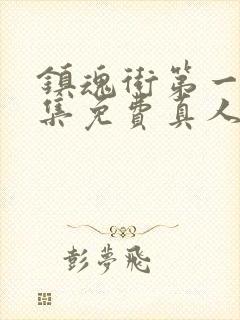 鎮魂街第一
集免費真人
彭夢飛